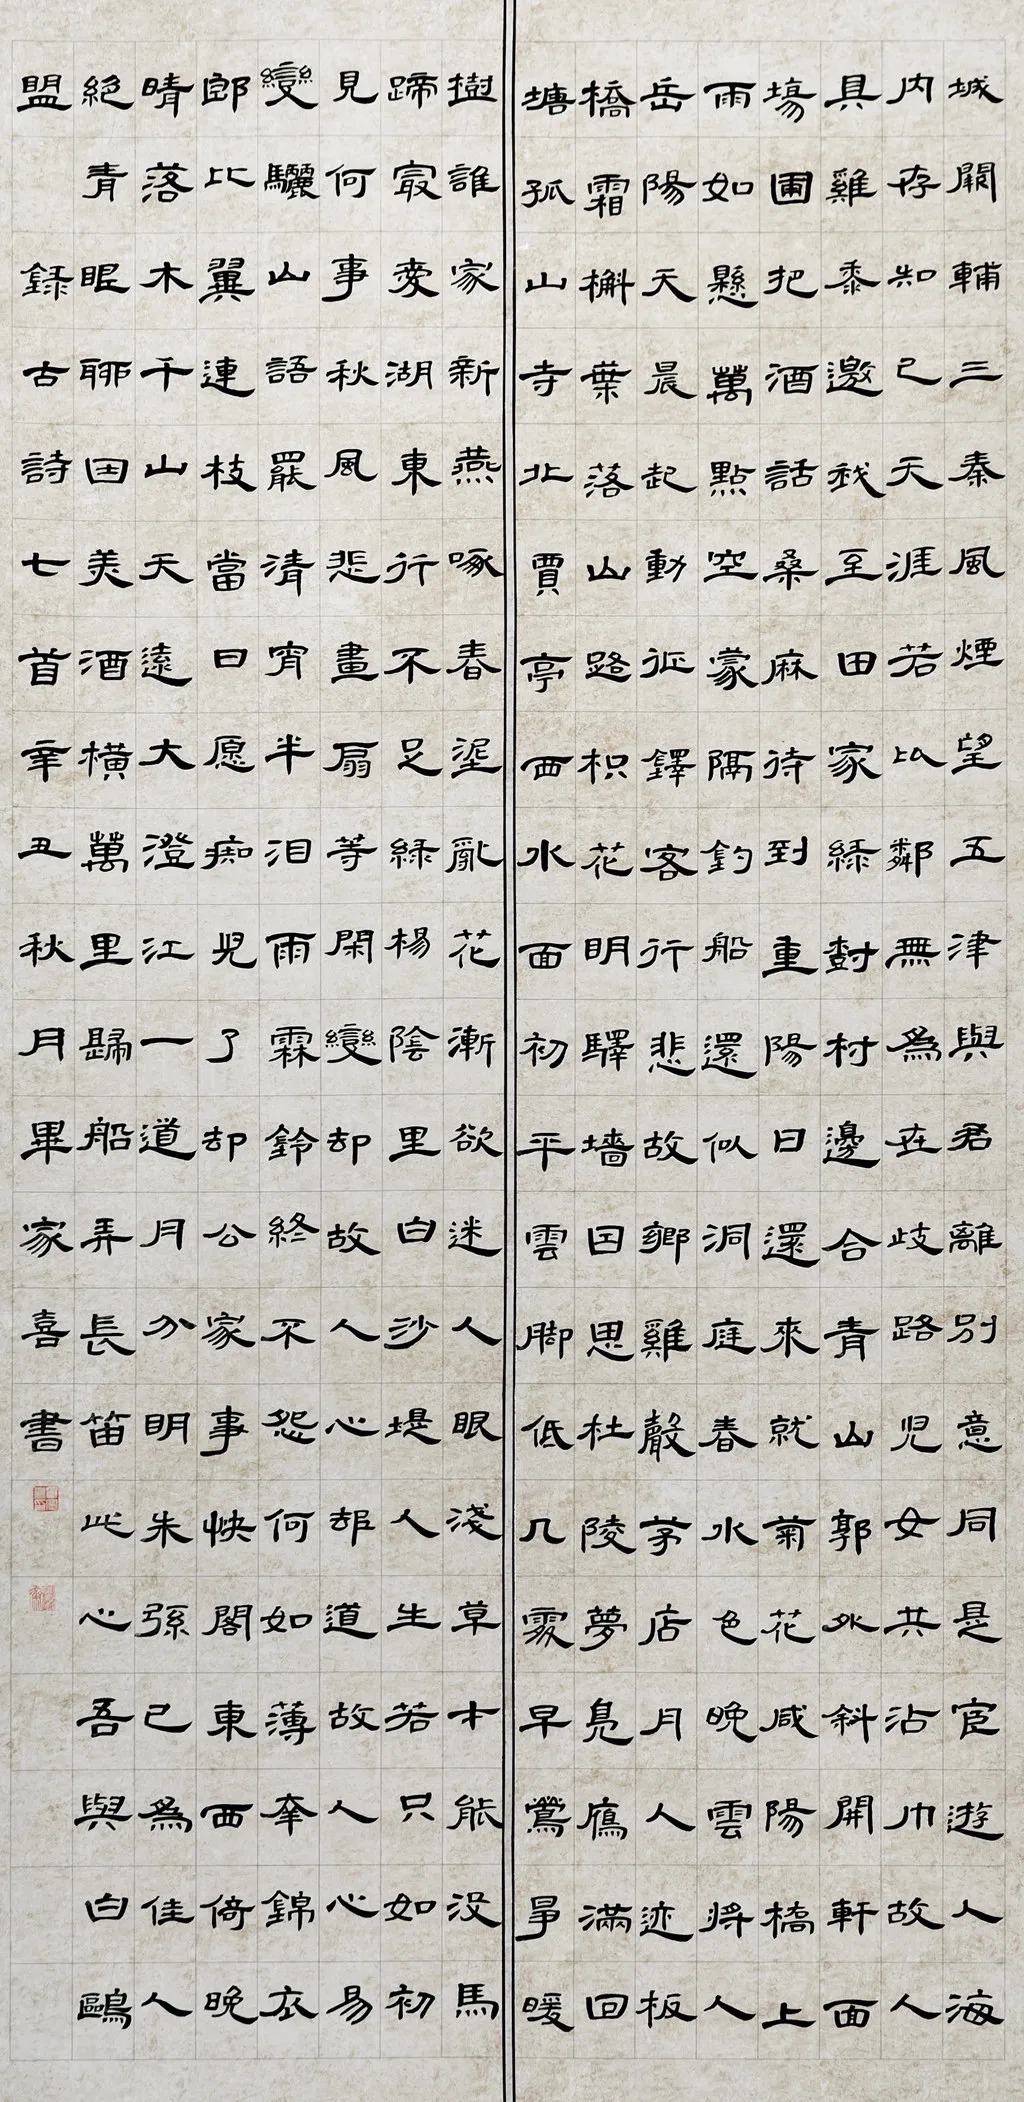 城闕輔三秦風煙望五津與君離別意同是宦遊人海
內存知己天涯若比鄰無為在歧路兒女共沾巾故人
具雞黍邀我至田家綠樹村邊合青山郭外斜開軒面
場圃把酒話桑麻待到重陽日還來就菊花咸陽橋上
雨如懸萬點空蒙隔釣船還似洞庭春水色晚雲將人
岳陽天晨起動征鐸客行悲故鄉雞聲茅店月人迹板
橋霜槲葉落山路枳花明驛墙因思杜陵夢鳧鴈滿回
塘孤山寺北賈亭西水面初平雲腳低几處早鶯爭暖
樹誰家新燕啄春泥亂花漸欲迷人眼淺草才能沒馬
蹄最愛湖東行不足綠楊陰里白沙堤人生若只如初
見何事秋風悲畫扇等閑變却故人心却道故人心易
變驪山語罷清宵半泪雨霖鈴終不怨何如薄幸錦衣
郎比翼連枝當日愿痴兒了却公家事快閣東西倚晚
晴落木千山天遠大澄江一道月分明朱弦已為佳人
絕青眼聊因美酒橫萬里歸船弄長笛此心吾與白鷗
盟 錄古詩七首辛丑秋月畢家喜書